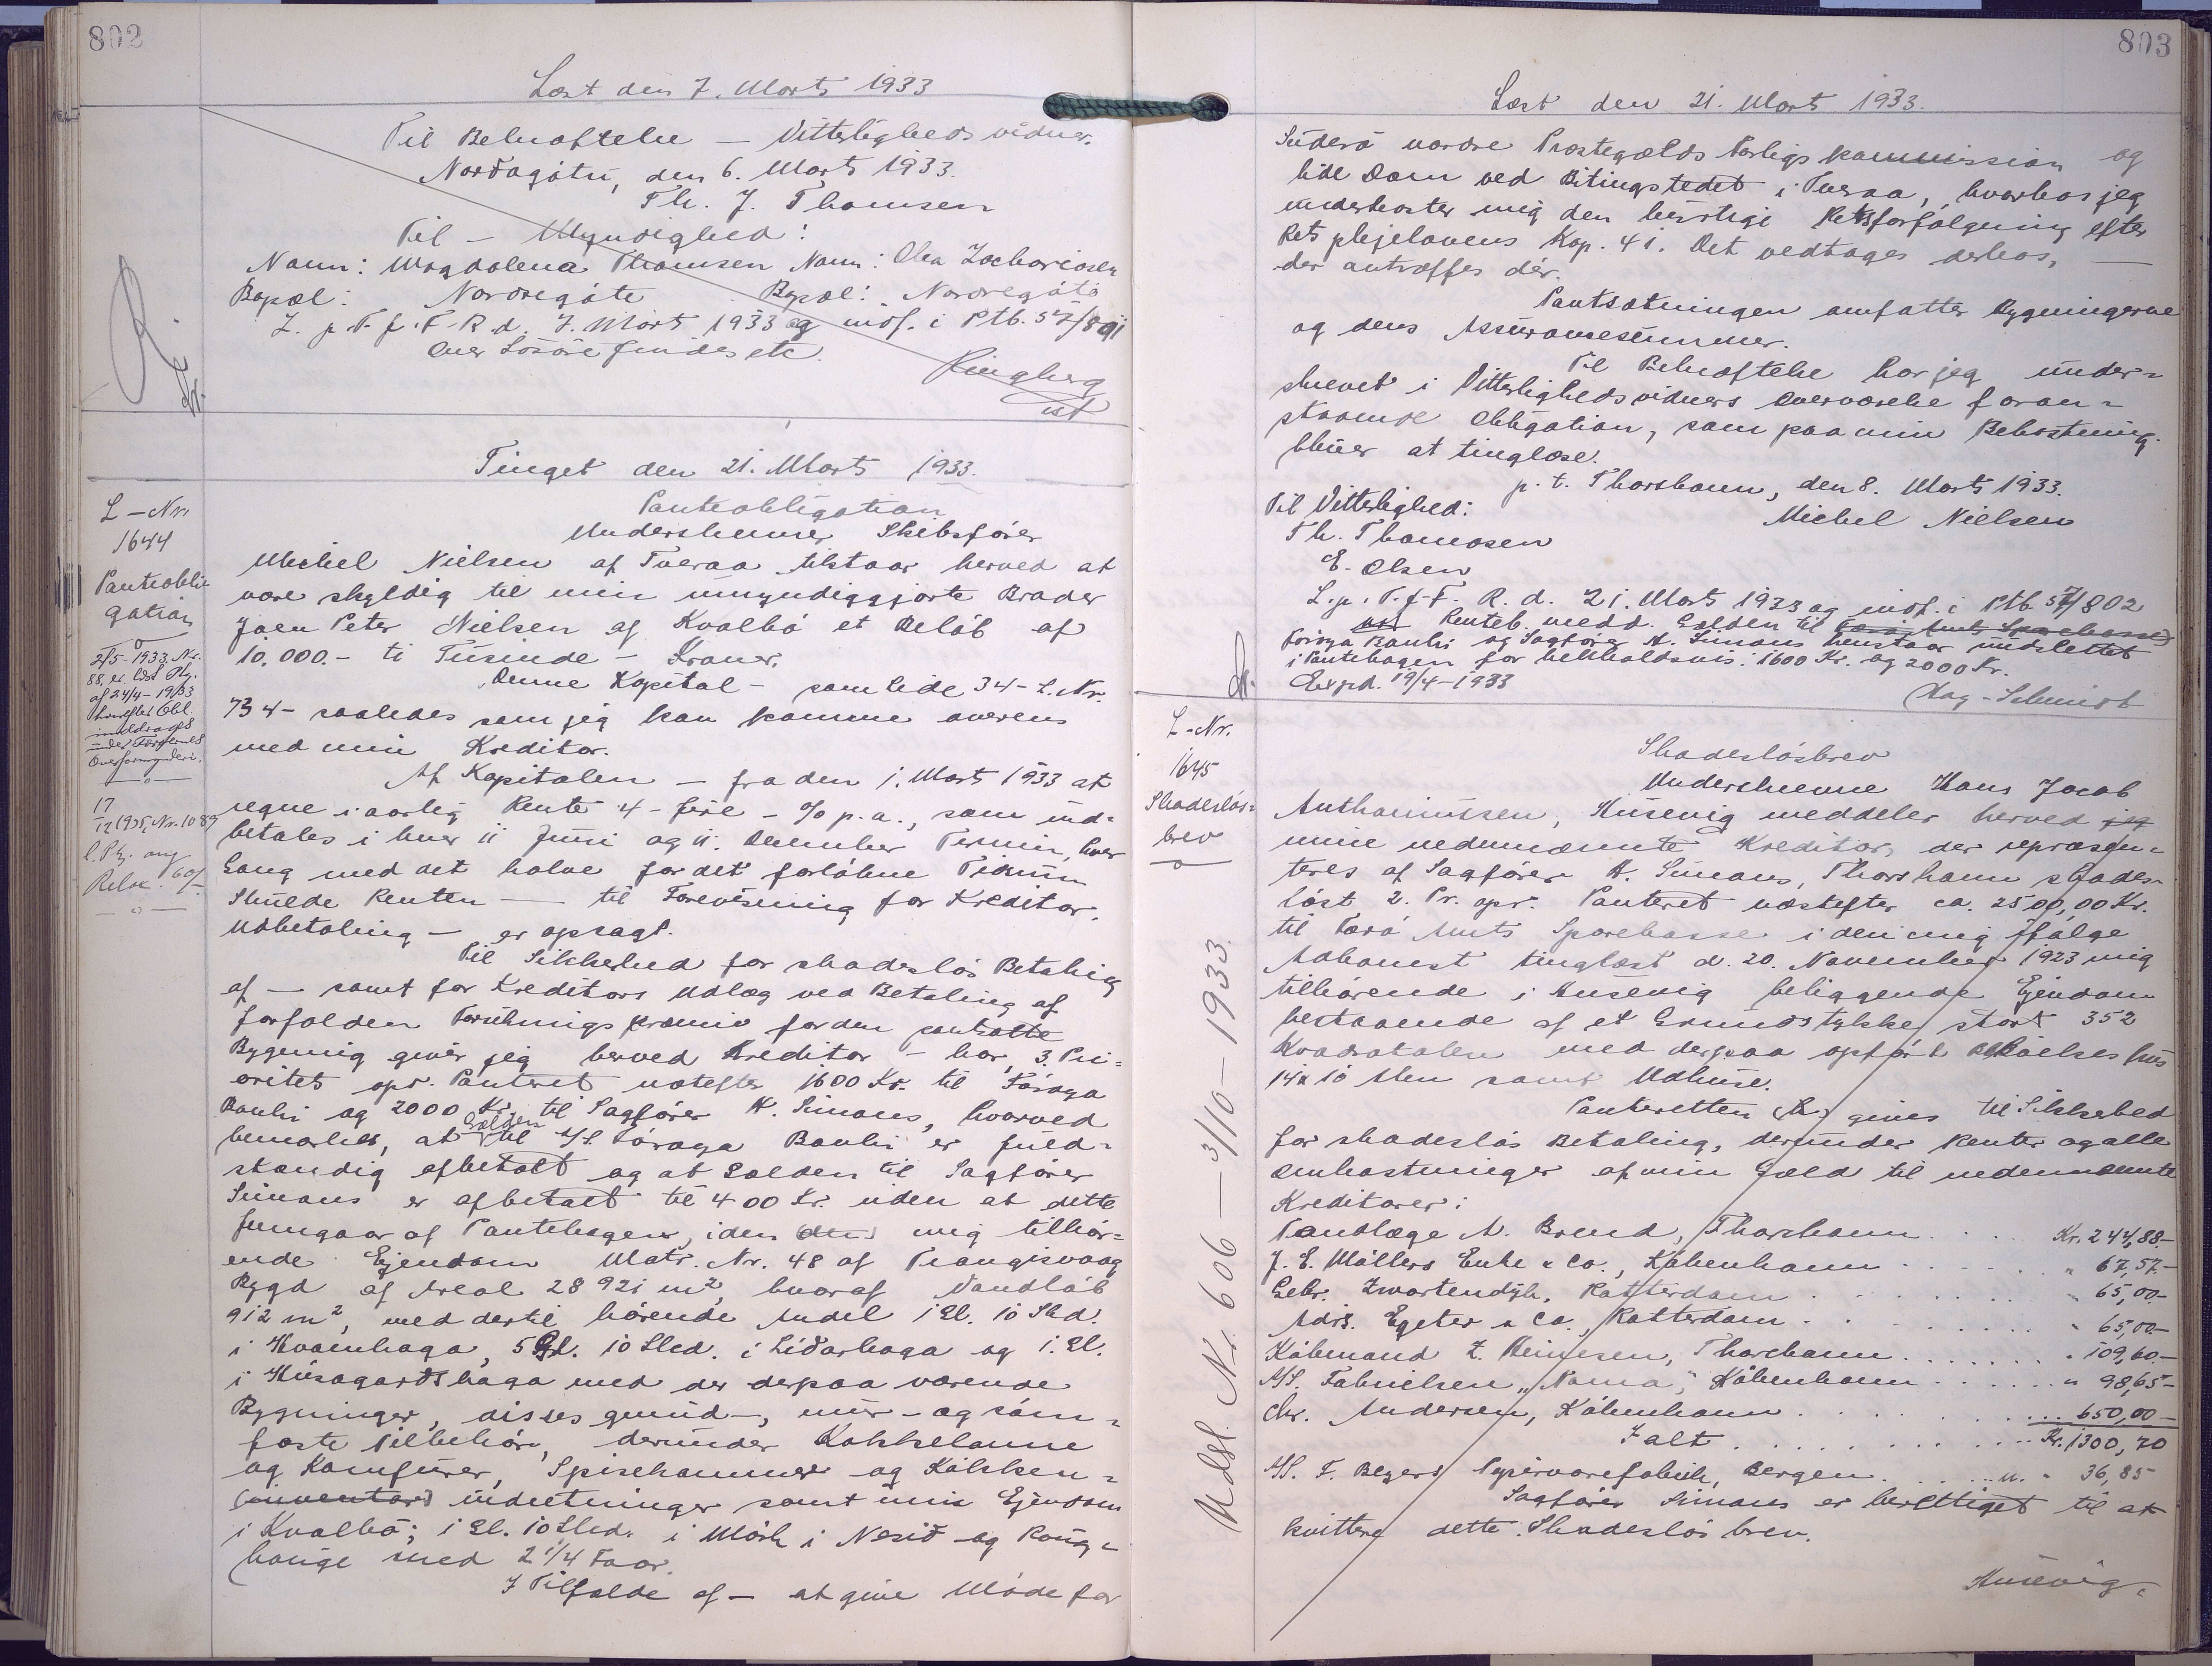 802
Læst den 7. Marts 1933
Til Bekræftelse — Vitterligheds vidner.
Nordagøtu, den 6. Marts 1933.
Th. J. Thomsen
Til — Myndighed:
Navn: Magdalena Thomsen Navn: Olea Zachariasen
Bopæl: Nordregøte Bopæl: Nordregøte
L. p. T. f. F. R. d. 7. Marts 1933 og indf. i Ptb. 57/891
over Løsøre findes ete.
Ringberg
cst
Tinget den 21. Marts 1933.
L-Nr.
1644
Panteobli-
gation
2/5-1933. Nr.
88. er lyst Ptg.
af 24/4-1933
hvorefter Obl.
inddrages
under Færøernes
Overformynderi.
17
12 1935, Nr. 1089
l. Ptg. ang
Relax. 60/-
Panteobligation
Underskrevne Skibsfører
Michel Nielsen af Tveraa tilstaar herved at
være skyldig til min umyndiggjorte Broder
Joen Peter Nielsen af Kvalbø et Beløb af
10.000.- ti Tusinde - Kroner.
Denne Kapital - som Side 34 - L. Nr.
734 - saaledes som jeg kan komme overens
med min Kreditor.
Af Kapitalen - fra den 1. Marts 1933 at
regne i aarlig Rente 4 - fire - % p.a., som ind-
betales i hver 11 Juni og 11. December Termin, hver
Gang med det halve for det forløbne Tidsrum
Skulde Renten — til Forevisning for Kreditor.
Udbetaling - er opsagt.
Til Sikkerhed for skadesløs Betaling
af - samt for Kreditors Udlæg ved Betaling af
forfalden Forsikringspræmie for den pantsatte
Bygning giver jeg herved Kreditor - har, 3. Pri-
oritets opr. Panteret næstefter 1600 Kr. til Føroya
Banki og 2000 Kr. til Sagfører K. Simans, hvorved
bemærkes, at Gælden til A/S Føroya Banki er fuld-
stændig afbetalt og at Gælden til Sagfører
Simans er afbetalt til 400 Kr. uden at dette
fremgaar af Pantebogen, i den (den) mig tilhør-
ende Ejendom Matr. Nr. 48 af Trangisvaag
Bygd af Areal 28921 m², hvoraf Vandløb
912 m², med dertil hørende Andel 1 Gl. 10 Skd.
i Hvamhaga, 5 Gl. 10 Sked. i Lidarhaga og 1. Gl.
i Húsagardshaga med de derpaa værende
Bygninger, disses grund-, mur- og søm-
faste Tilbehør, derunder Kakkelovne
og Komfurer, Spisekammer og Køkken-
(inventar) indretninger samt min Ejendom
i Kvalbø; 1 Gl. 10 Sked. i Mørk i Nesid og Kong-
hauge med 2 1/4 Faar.
I Tilfælde af - at give Møde for
803
Læst den 21. Marts 1933.
Suderø nordre Præstegælds Forligskommission og
lide Dom ved Bitingstedet i Tveraa, hvorhos jeg
underkaster mig den hurtige Retsforfølgning efter
Retsplejelovens Kap. 41. Det vedtages derhos, —
der antræffes dér.
Pantsætningen omfatter Bygningerne
og dens Assurancesummer.
Til Bekræftelse har jeg under-
skrevet i Vitterlighedsvidners Overværelse foran-
staaende Obligation, som paa min Bekostning
bliver at tinglæse.
p. t. Thorshavn, den 8. Marts 1933.
Til Vitterlighed: Michel Nielsen
Th. Thomasen
E. Olsen
L. p. T. f. F. R. d. 21. Marts 1933 og indf. i Ptb. 57/802
Renteb. medd. Gælden til Færø Amts Sparekasse
Føroya Banki og Sagfører K. Simans henstaar uudslettet
i Pantebogen for henholdsvis: 1600 Kr. og 2000 Kr.
Exped. 19/4-1933
Aag-Schmidt
L-Nr.
1645
Skadesløs-
brev
Udsl. Nr. 606 — 3/10 - 1933.
Skadesløsbrev
Underskrevne Hans Jacob
Anthoniussen, Husevig meddeler herved jeg
mine nedennævnte Kreditorer, der repræsen-
teres af Sagfører K. Simans, Thorshavn skades-
løst 2. Pr. opr. Panteret næstefter ca. 2500,00 Kr.
til Færø Amts Sparekasse i den mig ifølge
Adkomst tinglæst d. 20. November 1923 mig
tilhørende i Husevig beliggende Ejendom
bestaaende af et Grundstykke stort 352
Kvadratalen med derpaa opført Beboelseshus
14 x 10 Alen samt Udhuse.
Panteretten gives til Sikkerhed
for skadesløs Betaling, derunder Renter og alle
Omkostninger af min Gæld til nedennævnte
Kreditorer:
Tandlæge A. Brend, Thorshavn . . . Kr. 244,88.-
J. E. Møllers Enke & Co., København . . . " 67,57.-
Gebr. Zwartendijk, Rotterdam . . . " 65,00.-
Adrs. Egeter & Co. Rotterdam . . . " 65,00.-
Købmand Z. Heinesen, Thorshavn . . . " 109,60.-
A/S. Fabrikken "Noma", København . . . " 98,65-
Chr. Andersen, København . . . 650,00-
Ialt . . . Kr. 1300,70
A/S. F. Beyers Papirvarefabrik, Bergen . . . n. " 36,85
Sagfører Simans er berettiget til at
kvittere dette Skadesløsbrev.
Husevig,